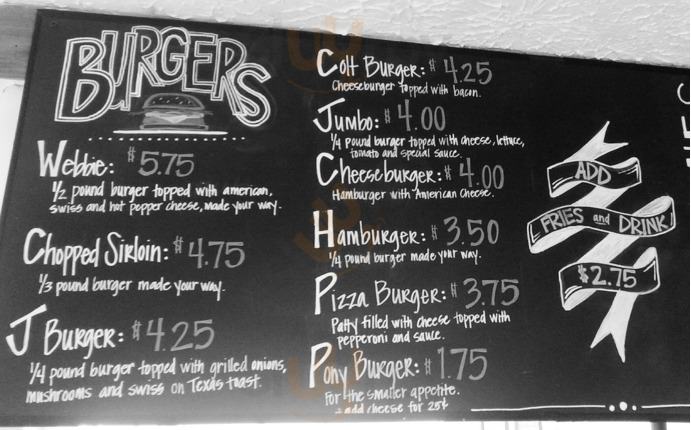 BURGERS
Webbie: $5.75
1/2 pound burger topped with american,
swiss and hot pepper cheese, made your way.
Chopped Sirloin: $4.75
1/3 pound burger made your way.
J Burger: $4.25
1/4 pound burger topped with grilled onions,
mushrooms and swiss on Texas toast.
Colt Burger: $4.25
Cheeseburger topped with bacon.
Jumbo: $4.00
1/4 pound burger topped with cheese, lettuce,
tomato and special sauce.
Cheeseburger: $4.00
Hamburger with American Cheese.
Hamburger: $3.50
1/4 pound burger made your way.
Pizza Burger: $3.75
Patty filled with cheese topped with
pepperoni and sauce.
Pony Burger: $1.75
For the smaller appetite.
add cheese for 25¢
ADD
FRIES and DRINK
$2.75